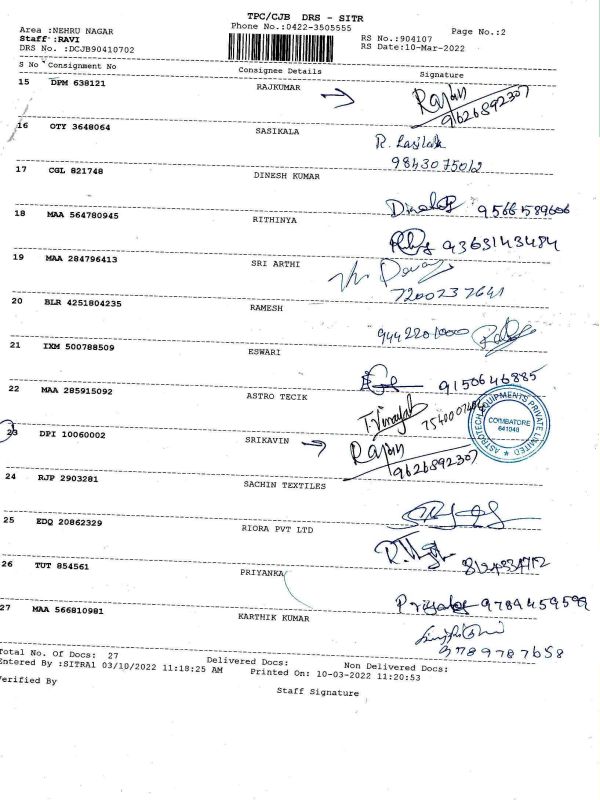 TPC/CJB DRS - SITR
Area :NEHRU NAGAR
Phone No.:0422-3505555
Page No.:2
Staff :RAVI
RS No.:904107
DRS No. :DCJB90410702
RS Date:10-Mar-2022
S No Consignment No Consignee Details Signature
15 DPM 638121 RAJKUMAR Rajan
9626892307
16 OTY 3648064 SASIKALA
9843075012
17 CGL 821748 DINESH KUMAR
9566589606
18 MAA 564780945 RITHINYA
9363143484
19 MAA 284796413 SRI ARTHI
7200737641
20 BLR 4251804235 RAMESH
9442201000
21 IXM 500788509 ESWARI
9150646885
22 MAA 285915092 ASTRO TECIK T.Vinayak
ASTROTECH EQUIPMENTS PRIVATE LIMITED
COIMBATORE
641048
23 DPI 10060002 SRIKAVIN Rajan
9626892307
24 RJP 2903281 SACHIN TEXTILES
25 EDQ 20862329 RIORA PVT LTD
26 TUT 854561 PRIYANKA
9789459599
27 MAA 566810981 KARTHIK KUMAR
9789787658
Total No. Of Docs: 27 Delivered Docs: Non Delivered Docs:
Entered By :SITRA1 03/10/2022 11:18:25 AM Printed On: 10-03-2022 11:20:53
Verified By
Staff Signature